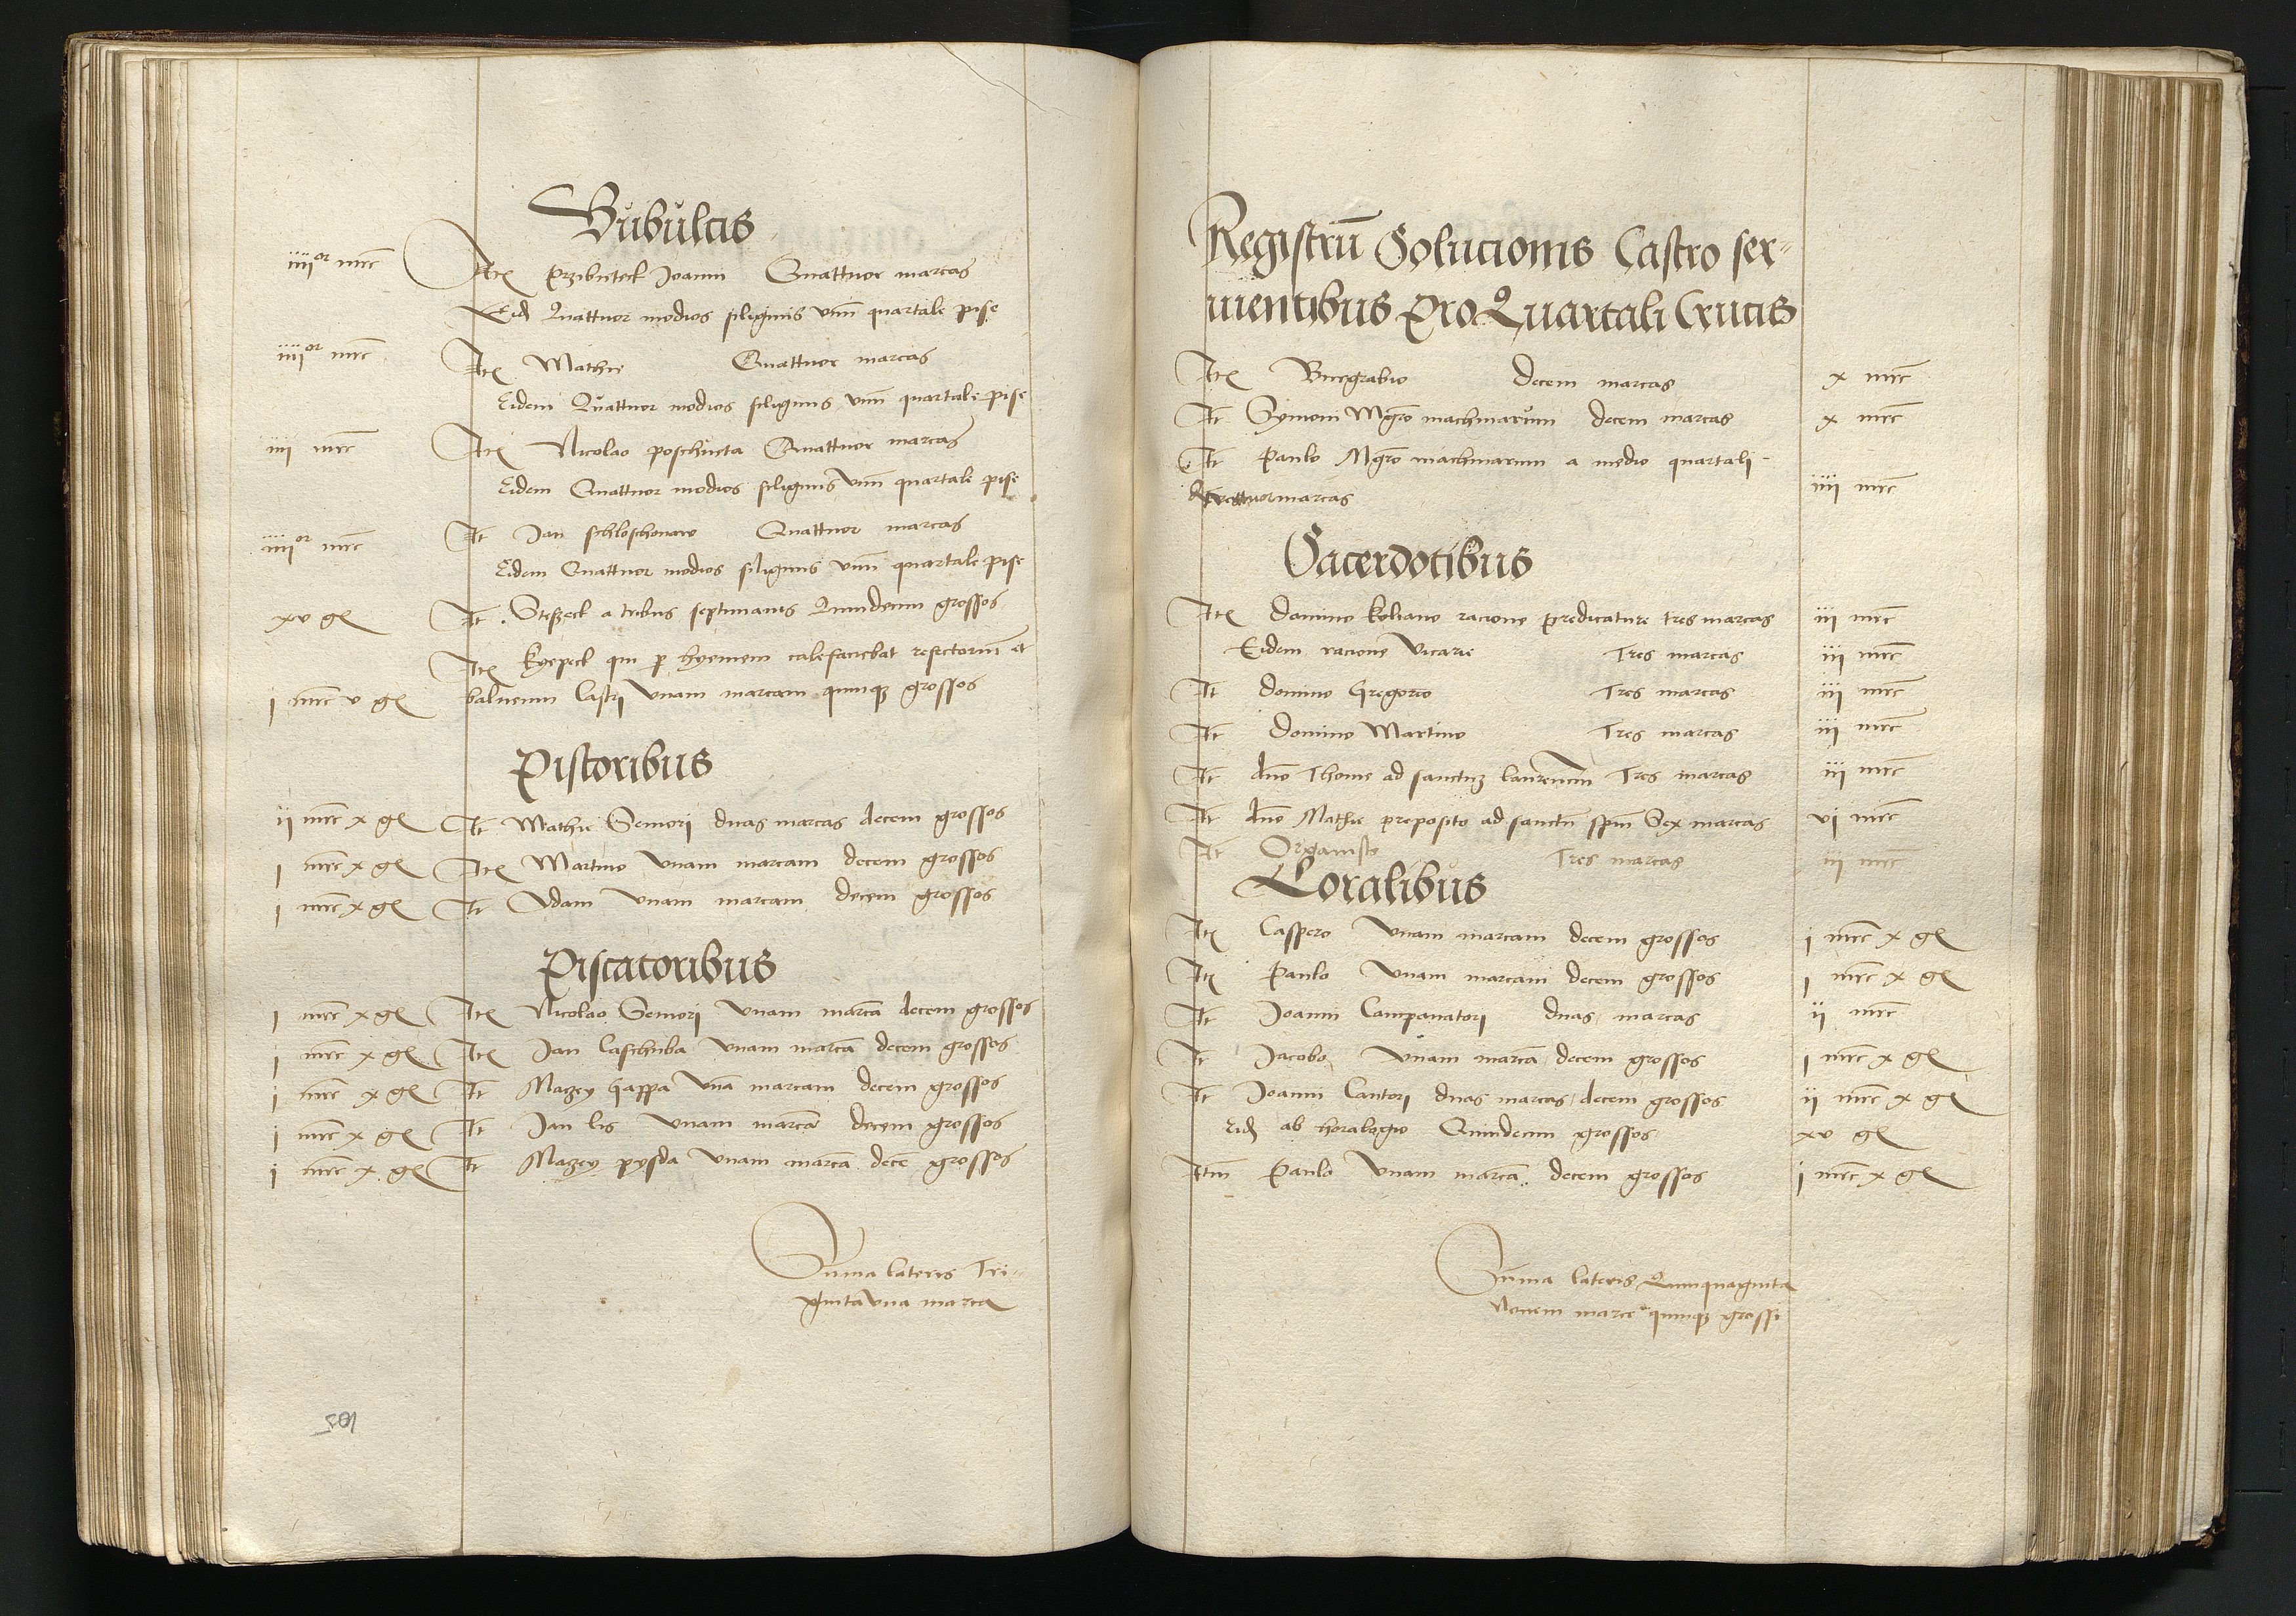 Bubulcis
iiii or mrc Ite Przibitek Joanni Quattuor marcas
Eid Quattuor modios siliginis vnu quartale pise
iiii or mrc Ite Mathie Quattuor marcas
Eidem Quattuor modios siliginis vnu quartale pise
iiii mrc Ite Nicolao poschinta Quattuor marcas
Eidem Quattuor modios siliginis vnu quartale pise
iiii or mrc It Jan schloschonaw Quattuor marcas
Eidem Quattuor modios siliginis vnu quartale pise
xv gr It a tribus septimanis Quindecim grossos
Ite Kyepeck qui p hyemem calefaciebat refectoriu et
j mrc v gr balneum Castri vnam marcam quinq grossos
Pistoribus
ij mrc x gr It Mathie Seniori duas marcas decem grossos
j mrc x gr Ite Martino vnam marcam decem grossos
j mrc x gr It Adam vnam marcam decem grossos
Piscatoribus
j mrc x gr Ite Nicolao Seniori vnam marca decem grossos
j mrc x gr Ite Jan laschuba vnam marca decem grossos
j mrc x gr It Mazey happa vna marcam decem grossos
j mrc x gr It Jan lis vnam marca decem grossos
j mrc x gr It Mazey pysda vnam marca dece grossos
Suma lateris Tri-
ginta vna marca
105
Registru Solucionis Castro ser-
uientibus Pro Quartali Crucis
Ite Burgrabio Decem marcas x mrc
It Symoni Mgro machinarum decem marcas x mrc
It Paulo Mgro machinarum a medio quartali
Quattuor marcas iiii mrc
Sacerdotibus
Ite Domino Kyliano racione predicature tres marcas iij mrc
Eidem racione vicarie Tres marcas iij mrc
It domino Gregorio Tres marcas iij mrc
It Domino Martino Tres marcas iij mrc
It dno Thome ad sanctu laurenciu Tres marcas iij mrc
It dno Mathie preposito ad sanctu spm Sex marcas vj mrc
It Organiste Tres marcas iij mrc
Coralibus
Ite Caspero vnam marcam decem grossos j mrc x gr
Ite Paulo vnam marcam decem grossos j mrc x gr
It Joanni Campanatori duas marcas ij mrc
It Jacobo vnam marca decem grossos j mrc x gr
It Joanni Cantori duas marcas decem grossos ij mrc x gr
Eid ab horalogio Quindecim grossos xv gr
Itm Paulo vnam marca decem grossos j mrc x gr
Suma lateris Quinquaginta
Nouem marce quinq grossi